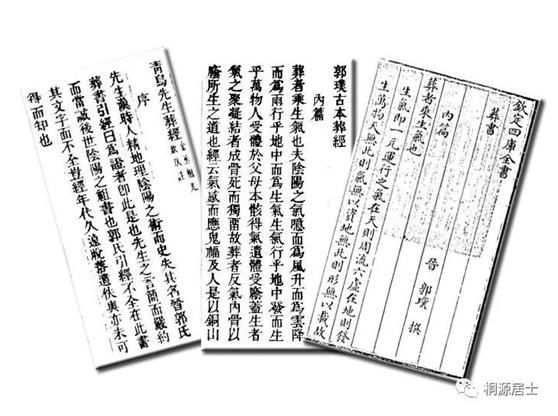 欽定四庫全書
葬書
晉 郭璞 撰
內篇
葬者乘生氣也
生氣即一元運行之氣在天則周流六虛在地則發
生萬物天無此則氣無以資地無此則形無以載故
郭璞古本葬經
內篇
葬者乘生氣也夫陰陽之氣噫而為風升而為雲降
而為雨行乎地中而為生氣生氣行乎地中發而生
乎萬物人受體於父母本骸得氣遺體受廕蓋生者
氣之聚凝結者成骨死而獨留故葬者反氣內骨以
廕所生之道也經云氣感而應鬼福及人是以銅山
青烏先生葬經
序
先生漢時人精地理陰陽之術而史失其名晉郭氏
葬書引經曰為證者即此是也先生之言簡而嚴約
而當誠後世陰陽之祖書也郭氏引經不全在此書
其文字面不全豈經年代久遠脫落遺佚與亦未可
得而知也
桐源居士